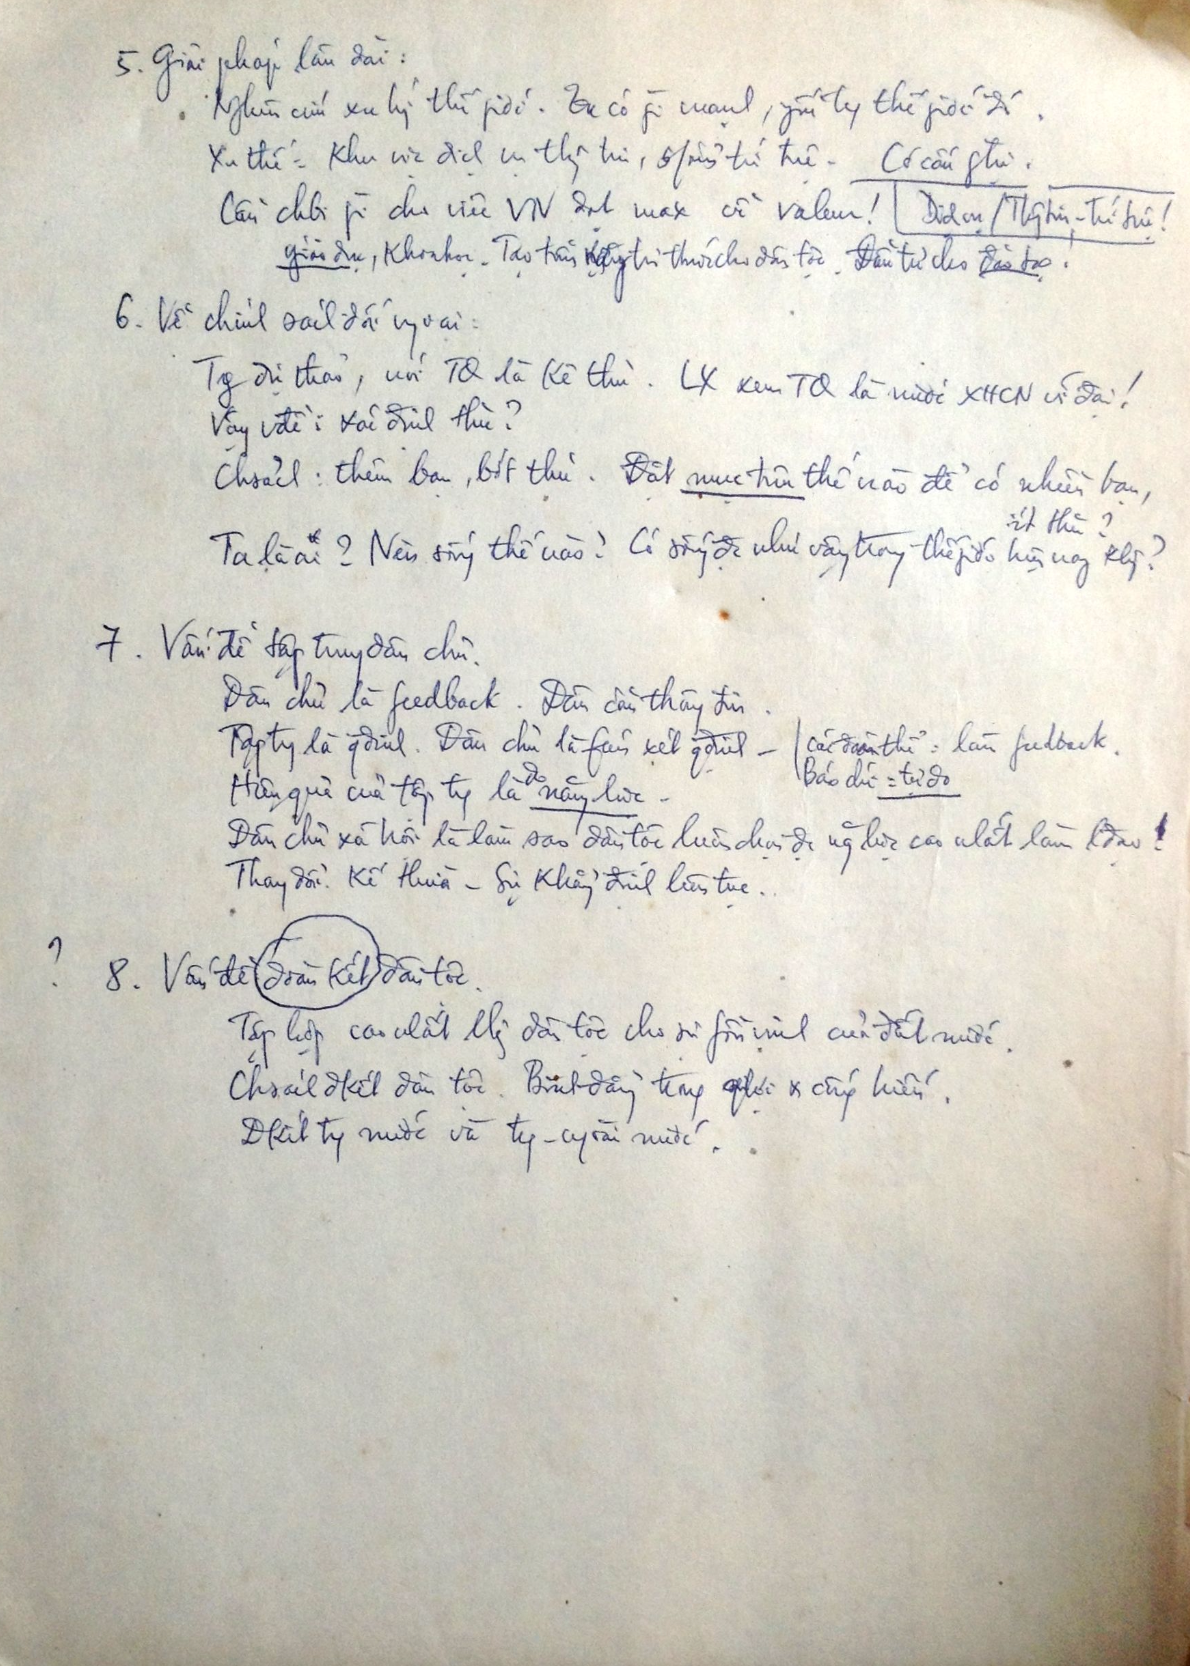 5. Giải pháp lâu dài:
Nghiên cứu xu hg thế giới. Ta có gì mạnh, yếu tg thế giới đó.
Xu thế = Khu vực dịch vụ thg tin, s/fẩm trí tuệ. Có cần gthi.
Cần chbị gì cho việc VN đạt max về valeur! Dịch vụ/Thg tin - trí tuệ!
giáo dục, Khoahọc. Tạo tri thức cho dân tộc. Đầu tư cho đào tạo.
6. Về chính sách đối ngoại:
Tg dự thảo, nói TQ là kẻ thù. LX xem TQ là nước XHCN vĩ đại!
Vậy vđề: xác định thù?
Chsách: thêm bạn, bớt thù. Đặt mục tiêu thế nào để có nhiều bạn,
ít thù?
Ta là ai? Nên sống thế nào? Có sống đc như vậy trong thế giới hiện nay khg?
7. Vấn đề tập trung dân chủ.
Dân chủ là feedback. Dân cần thông tin.
Tập tg là qđịnh. Dân chủ là fán xét qđịnh - các đoàn thể = làm feedback.
Báo chí = tự do
Hiệu quả của tập tg là do năng lực -
Dân chủ xã hội là làm sao dân tộc luôn chọn đc ng lực cao nhất làm lđạo!
Thay đổi. Kế thừa - Sự khẳng định liên tục.
? 8. Vấn đề đoàn kết dân tộc.
Tập hợp cao nhất dân tộc cho sự fồn vinh của đất nước.
Chsách đkết dân tộc. Bình đẳng trong cống hiến.
Đkết tg nước và tg - ngoài nước.